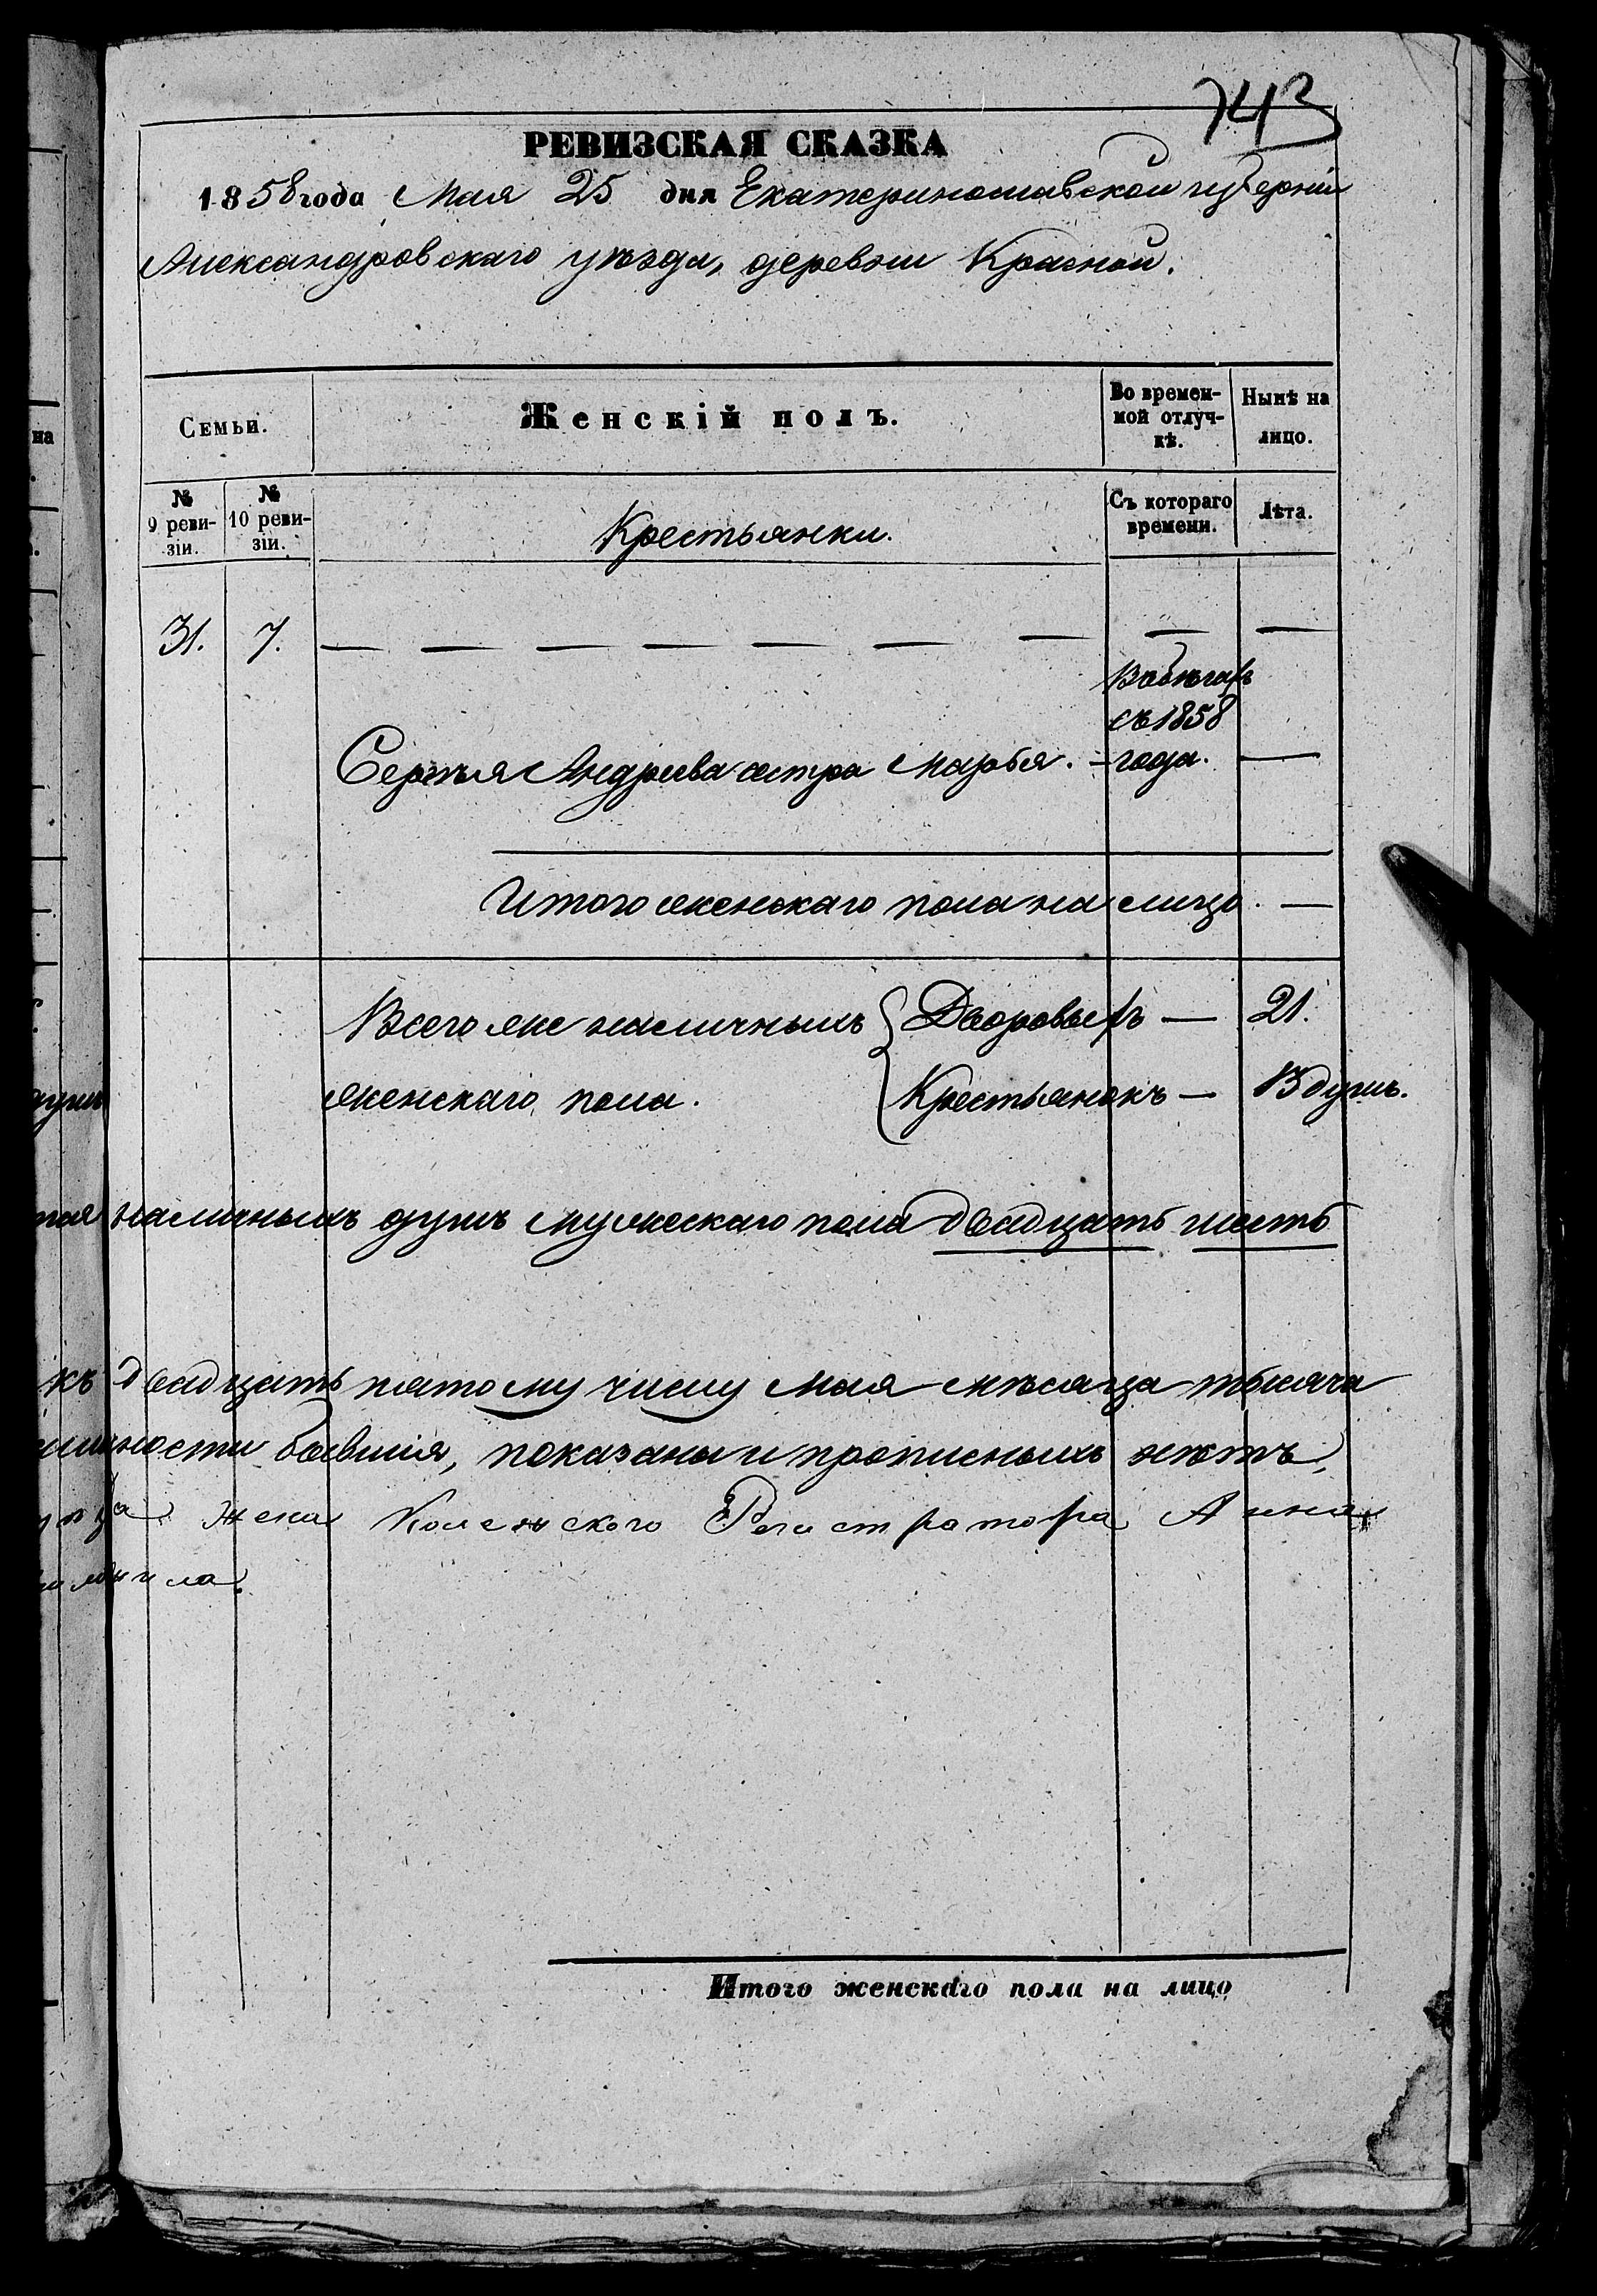 743
РЕВИЗСКАЯ СКАЗКА
1858 года Мая 25 дня Екатеринославской губерніи
Александровскаго уѣзда, деревни Красной.
Семьи.
Женскій полъ.
Во времен-
ной отлуч-
кѣ.
Нынѣ на
лицо.
№
9 реви-
зіи.
№
10 реви-
зіи.
Крестьянки.
Съ котораго
времени.
Лѣта.
31. 7. — — — — — — — — —
Въ бѣгахъ
съ 1858
Сергѣя Андреева сестра Марья. – года. —
Итого женскаго пола на лицо. —
Всего же наличныхъ { Дворовыхъ — 21.
женскаго пола. Крестьянокъ — 13 душъ.
душъ
наличныхъ душъ мужескаго пола двадцать шесть
къ двадцать пятому числу Мая мѣсяца тысяча
бывшія, показаны и прописныхъ нѣтъ,
жена Регистратора Анна
Итого женскаго пола на лицо
на